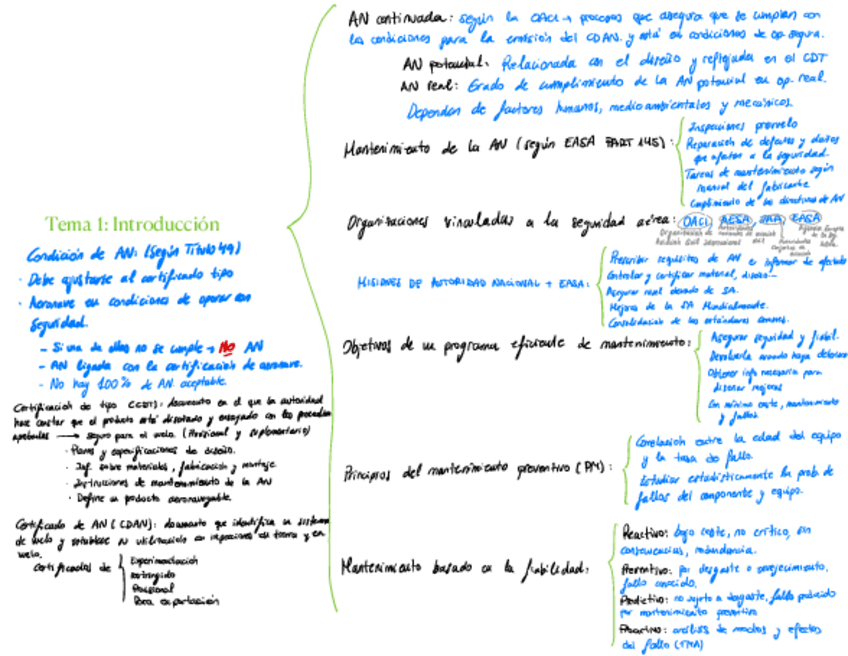 Tema 1: Introducción
Condición de AN: (según Título 49)
· Debe ajustarse al certificado tipo
· Aeronave en condiciones de operar con
seguridad.
- Si una de ellas no se cumple → No AN
- AN ligada con la certificación de aeronave.
- No hay 100% de AN aceptable.
Certificación de tipo (CDT): documento en el que la autoridad
hace constar que el producto está diseñado y ensayado con los
→ seguro para el vuelo. (Provisional y suplementario)
· Planos y especificaciones de diseño.
· Inf. sobre materiales, fabricación y montaje.
· Instrucciones de mantenimiento de la AN
· Define un producto aeronavegable.
Certificado de AN (CDAN): documento que identifica un sistema
de vuelo y establece su utilización en operaciones de tierra y en
vuelo.
Certificados de
Experimentación
restringido
Provisional
Para exportación
AN continuada: según la OACI → procesos que asegura que se cumplan con
las condiciones para la emisión del CDAN. y está en condiciones de op. segura.
AN potencial: Relacionada con el diseño y reflejada en el CDT
AN real: Grado de cumplimiento de la AN potencial en op. real.
Dependen de factores humanos, medioambientales y mecánicos.
Mantenimiento de la AN (según EASA PART 145):
Inspecciones prevuelo
Reparación de defectos y daños
que afecten a la seguridad.
Tareas de mantenimiento según
manual del fabricante
Cumplimiento de las directivas de AN
Organizaciones vinculadas a la seguridad aérea: OACI AESA JAA EASA
MISIONES DE AUTORIDAD NACIONAL + EASA:
Prescribir requisitos de AN e informar de
Controlar y certificar material, diseño...
Asegurar nivel deseado de SA.
Mejora de la SA Mundialmente.
Consolidación de los estándares comunes.
Objetivos de un programa eficiente de mantenimiento:
Asegurar seguridad y fiabil.
Devolverla cuando haya deterioro
Obtener info necesaria para
diseñar mejoras
Con mínimo coste, mantenimiento
y fallos.
Principios del mantenimiento preventivo (PM):
Correlación entre la edad del equipo
y la tasa de fallo.
Estudiar estadísticamente la prob. de
fallos del componente y equipo.
Mantenimiento basado en la fiabilidad:
Reactivo: bajo coste, no crítico, sin
consecuencias, redundancia.
Preventivo: por desgaste o envejecimiento.
fallo conocido.
Predictivo: no sujeto a desgaste, fallo
por mantenimiento preventivo
Proactivo: análisis de modos y efectos
del fallo